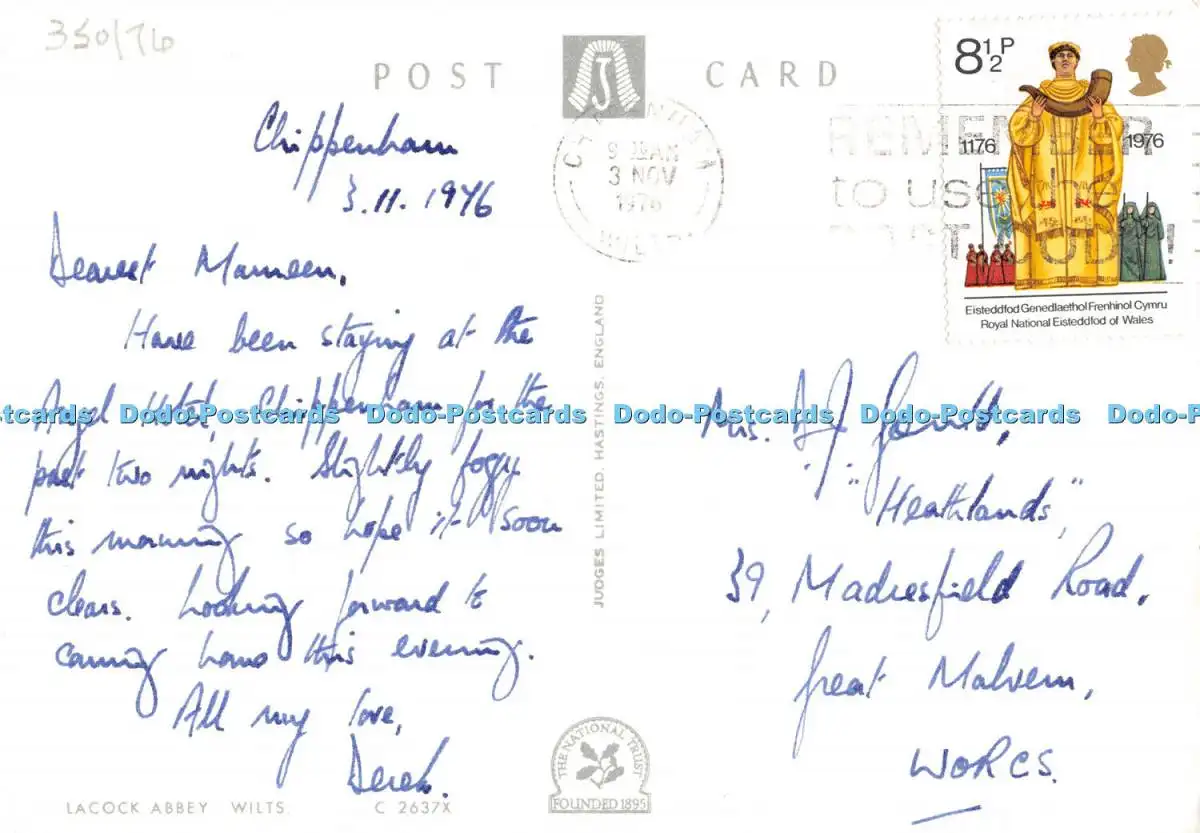 350/76
POST CARD
J
Chippenham
3.11.1976
Dearest Maureen,
Have been staying at the
Angel Hotel, Chippenham for the
past two nights. Slightly foggy
this morning so hope it soon
clears. Looking forward to
coming home this evening.
All my love,
Derek.
LACOCK ABBEY WILTS. C 2637X
JUDGES LIMITED, HASTINGS, ENGLAND
THE NATIONAL TRUST
FOUNDED 1895
CHIPPENHAM
3 NOV
1976
WILTS
REMEMBER
to use the
POST CODE!
8½P
1176 1976
Eisteddfod Genedlaethol Frenhinol Cymru
Royal National Eisteddfod of Wales
Mrs. D J
"Heathlands",
39, Madresfield Road,
Great Malvern,
WORCS.
Dodo-Postcards Dodo-Postcards Dodo-Postcards Dodo-Postcards